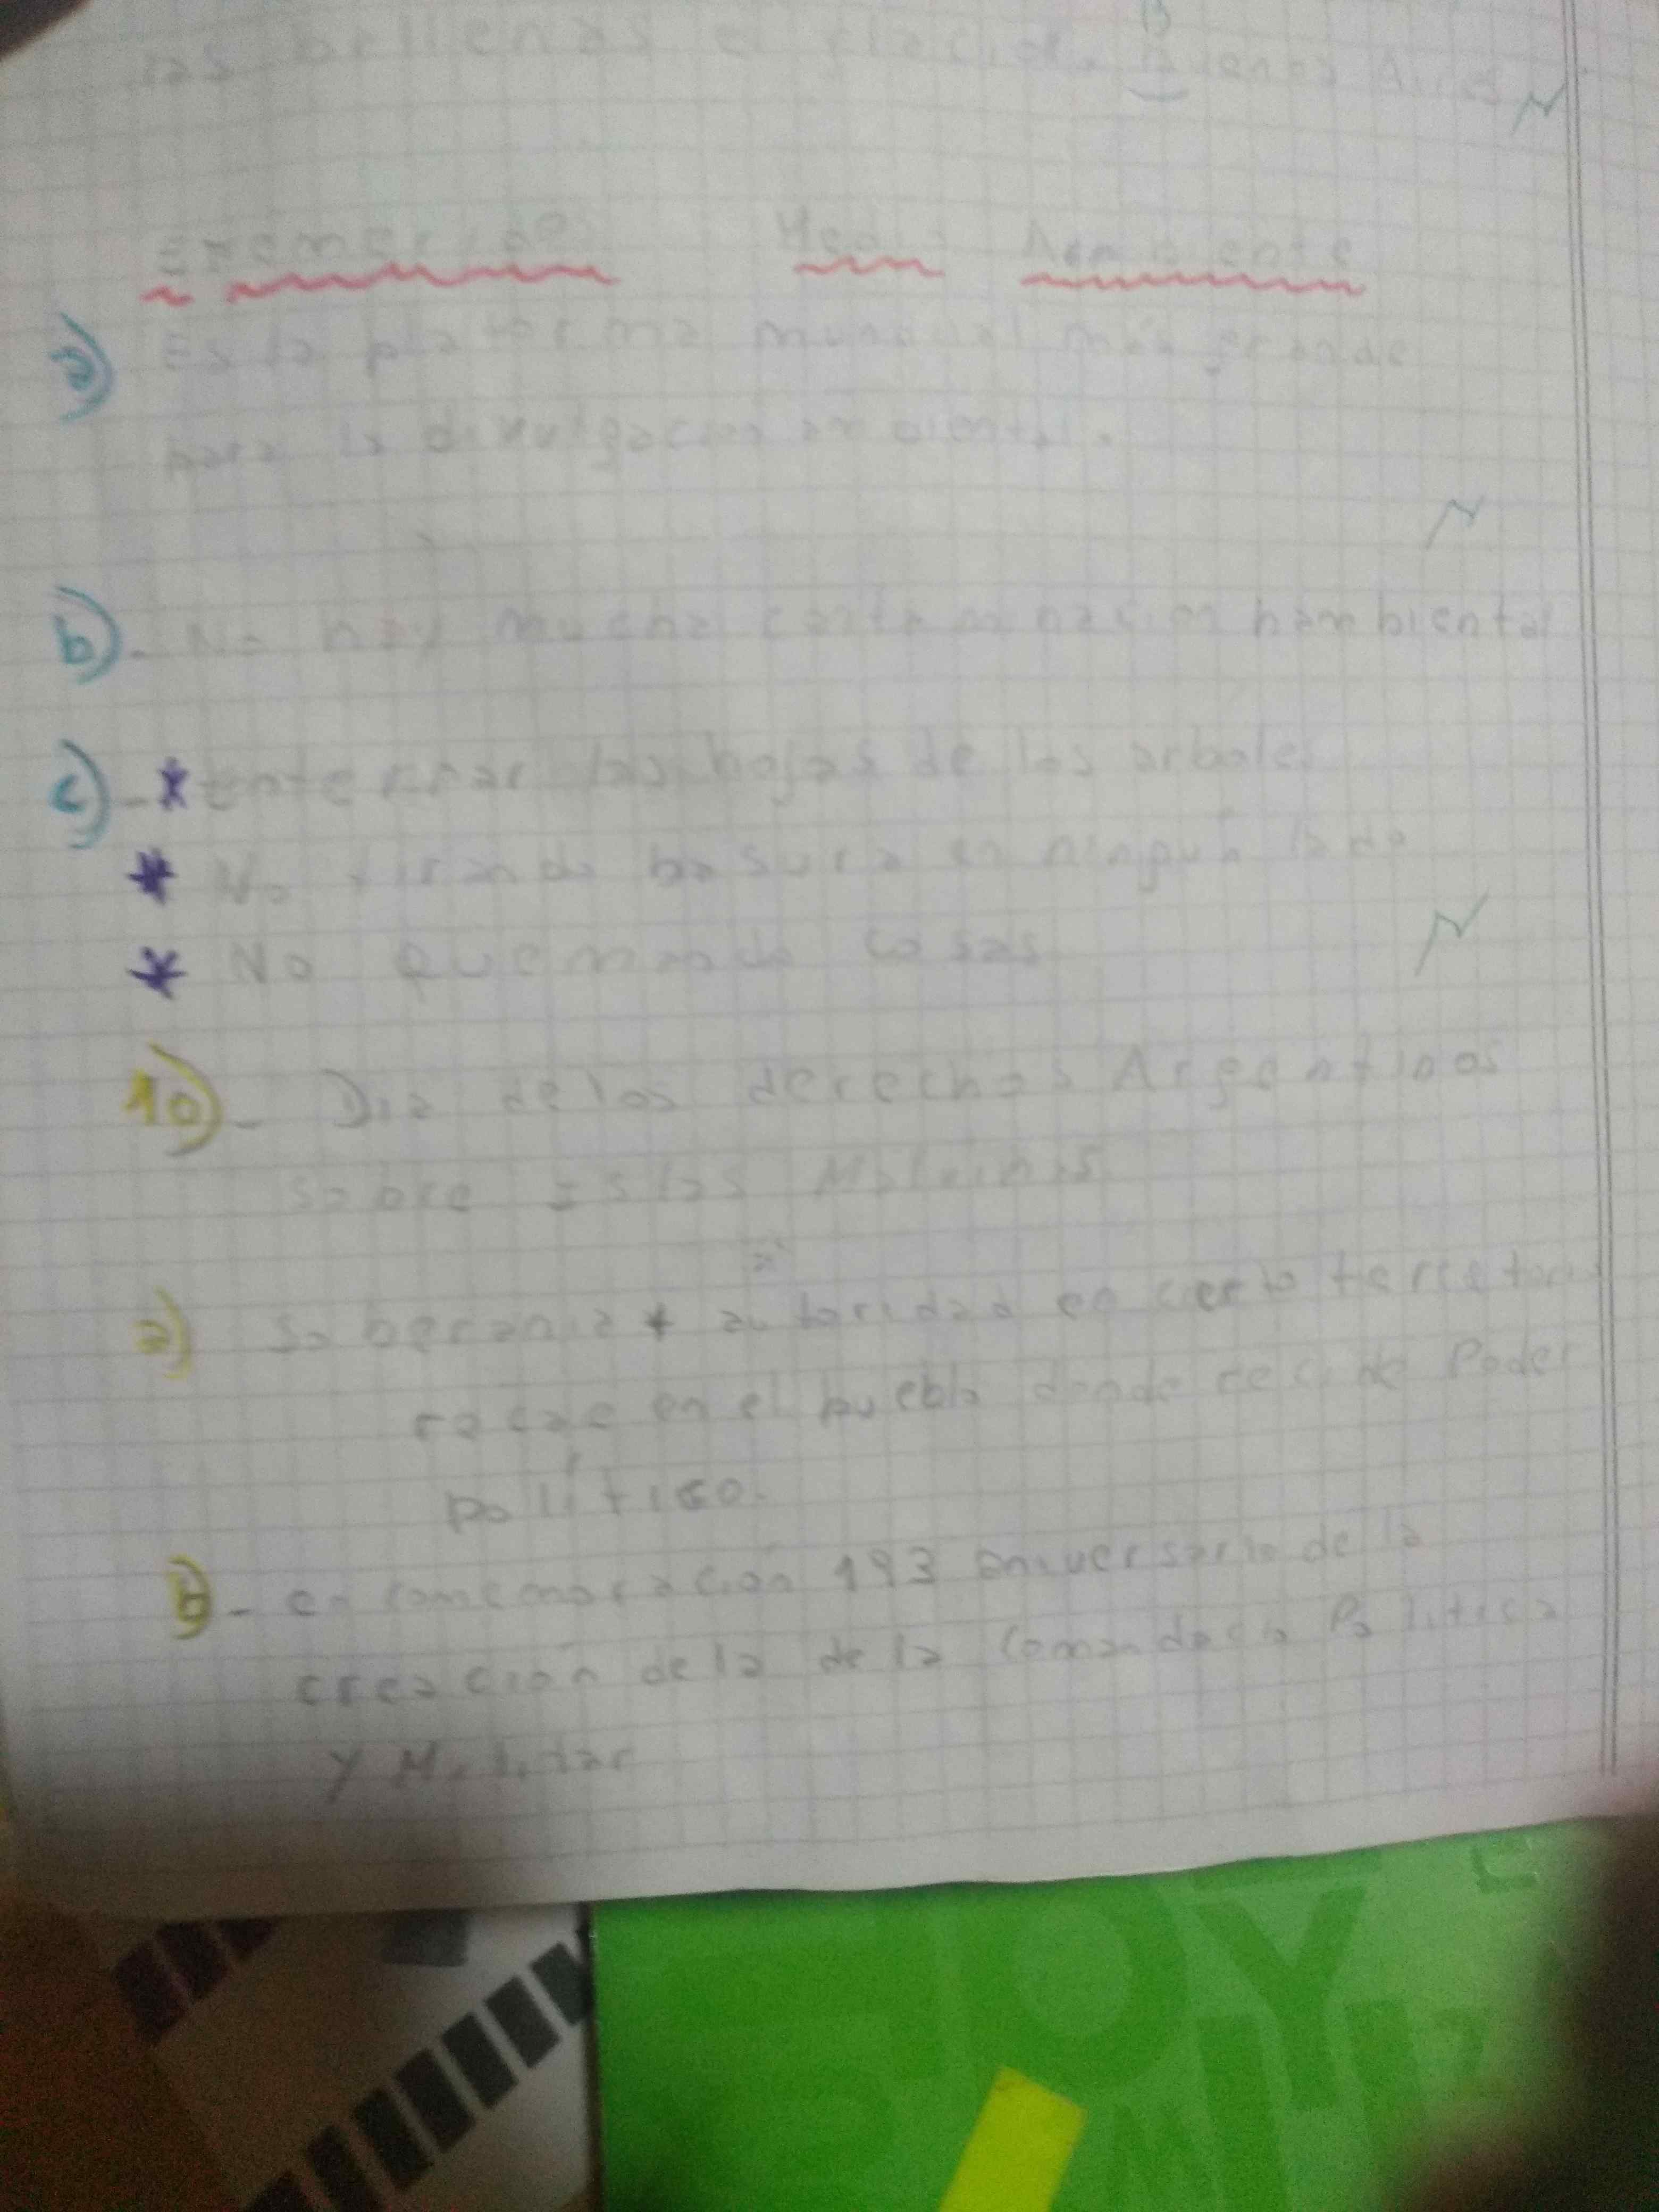 las bellenas el Buenos Aires
Efemerides Medio Ambiente
a) Es la plataforma mundial más grande
para la divulgacion ambiental.
b)- No hay mucha contaminacion hambiental
c)- * enterrar las hojas de los arboles
* No tirando basura en ningún lado
* No quemando cosas
10)- Dia de los derechos Argentinos
sobre Islas Malvinas
a) Soberania * autoridad en cierto
recae en el pueblo donde recide Poder
político.
b- en comemoración 193 aniversario de la
creación de la de la Comandacia Politica
y Militar
OY